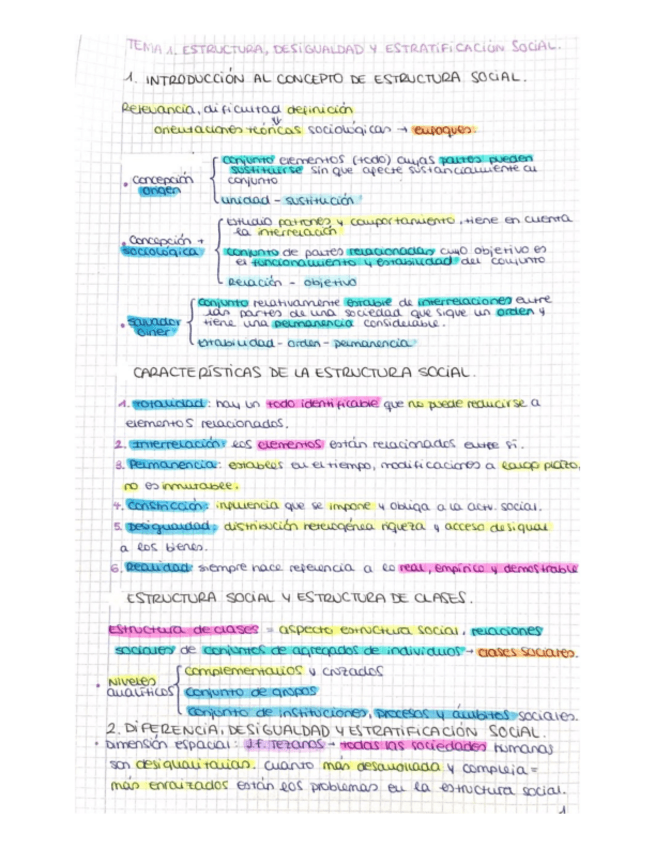 TEMA 1. ESTRUCTURA, DESIGUALDAD Y ESTRATIFICACIÓN SOCIAL.
1. INTRODUCCIÓN AL CONCEPTO DE ESTRUCTURA SOCIAL.
Relevancia, dificultad definición
orientaciones teóricas sociológicas → enfoques.
• concepción origen
conjunto elementos (todo) cuyas partes pueden
sustituirse sin que afecte sustancialmente al
conjunto
unidad - sustitución
• Concepción + sociológica
Estudio patrones y comportamiento, tiene en cuenta
la interrelación
conjunto de partes relacionadas cuyo objetivo es
el funcionamiento y estabilidad del conjunto
Relación - objetivo
• Salvador Giner
conjunto relativamente estable de interrelaciones entre
las partes de una sociedad que sigue un orden y
tiene una permanencia considerable.
estabilidad - orden - permanencia
CARACTERÍSTICAS DE LA ESTRUCTURA SOCIAL.
1. Totalidad: hay un todo identificable que no puede reducirse a
elementos relacionados.
2. Interrelación: los elementos están relacionados entre sí.
3. Permanencia: estables en el tiempo, modificaciones a largo plazo,
no es inmutable.
4. Constricción: influencia que se impone y obliga a la activ. social.
5. Desigualdad: distribución heterogénea riqueza y acceso desigual
a los bienes.
6. Realidad: siempre hace referencia a lo real, empírico y demostrable
ESTRUCTURA SOCIAL Y ESTRUCTURA DE CLASES.
Estructura de clases = aspecto estructura social, relaciones
sociales de conjuntos de agregados de individuos → clases sociales.
• Niveles analíticos
complementarios y cruzados
conjunto de grupos
conjunto de instituciones, procesos y ámbitos sociales.
2. DIFERENCIA, DESIGUALDAD Y ESTRATIFICACIÓN SOCIAL.
• Dimensión espacial: J.F. TEZANOS → todas las sociedades humanas
son desigualitarias. Cuanto más desarrollada y compleja =
más enraizados están los problemas en la estructura social.
1